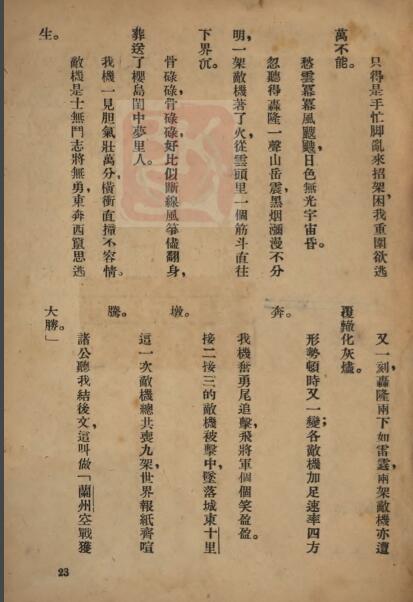 只得是手忙脚亂來招架，困我重圍欲逃
萬不能。
愁雲冪冪風颼颼，日色無光宇宙昏。
忽聽得轟隆一聲山岳震，黑烟瀰漫不分
明，一架敵機著了火，從雲頭里一個筋斗直往
下界沉。
骨碌碌，骨碌碌，好比似斷線風箏儘翻身，
葬送了櫻島閨中夢里人。
我機一見胆氣壯萬分，橫衝直撞不容情。
敵機是士無鬥志將無勇，東奔西竄思逃
生。
又一刻，轟隆兩下如雷震，兩架敵機亦遭
覆轍化灰燼。
形勢頓時又一變；各敵機加足速率四方
奔。
我機奮勇尾追擊，飛將軍個個笑盈盈。
接二接三的敵機被擊中，墜落城東十里
墩。
這一次敵機總共喪九架，世界報紙齊喧
騰。
諸公聽我結後文，這叫做「蘭州空戰獲
大勝。」
23